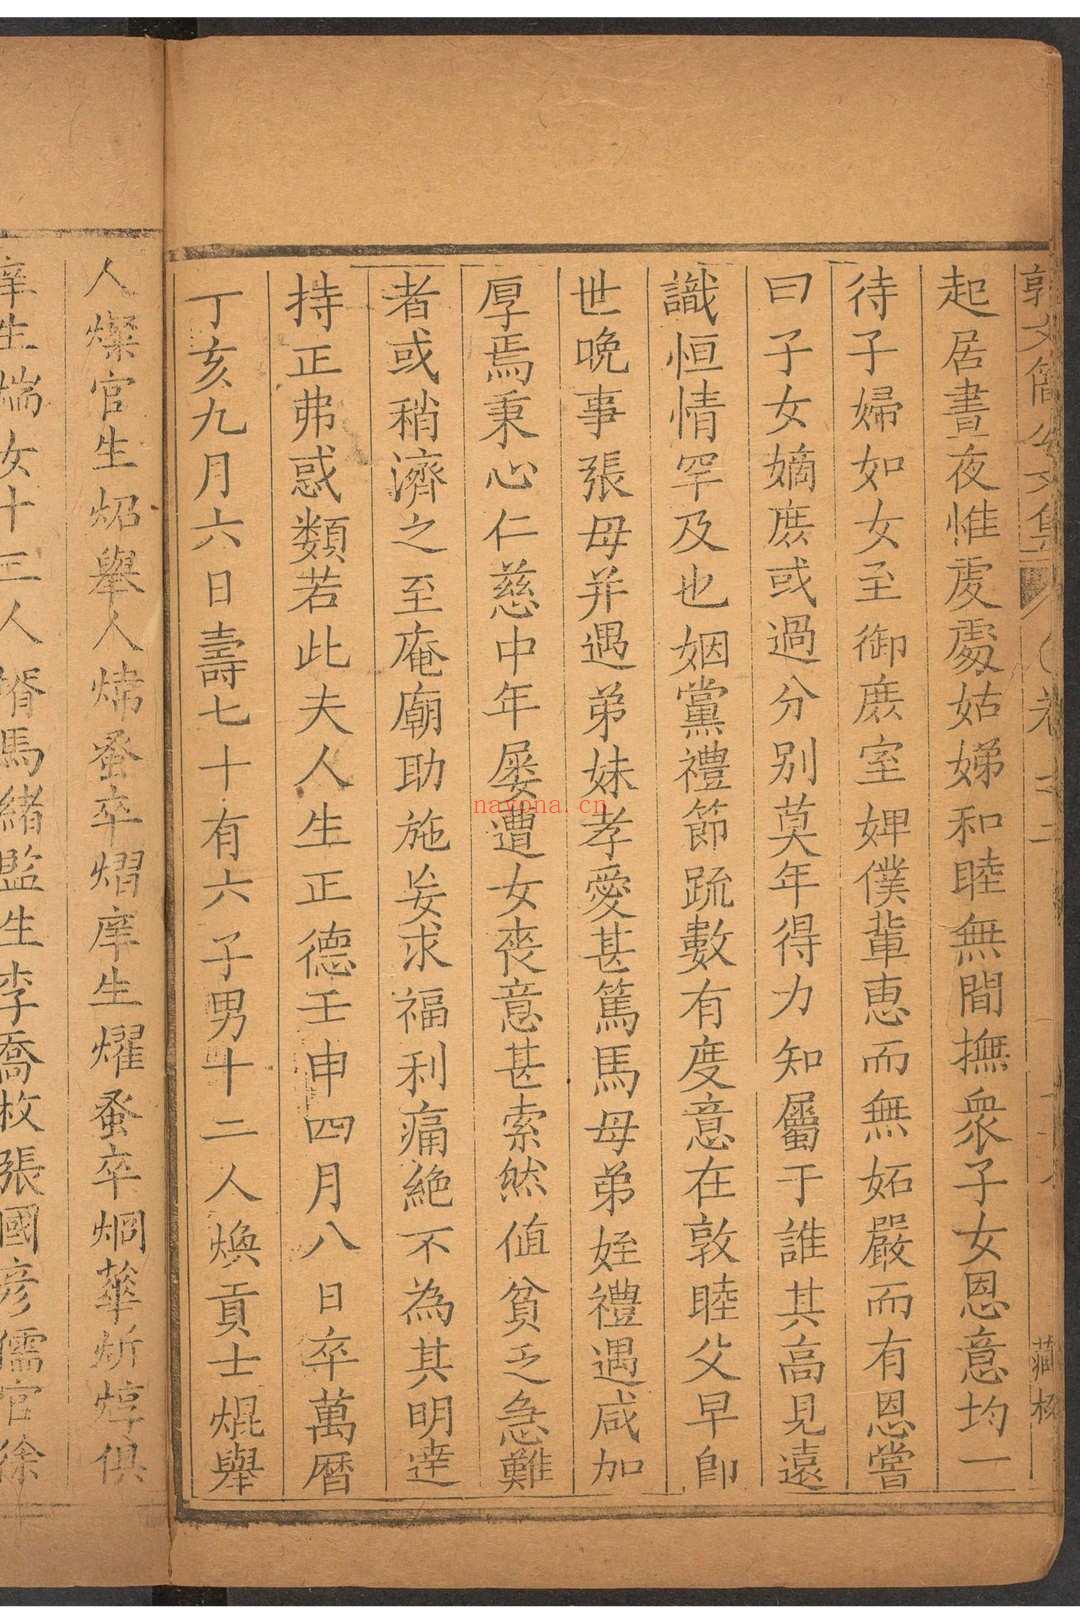 郭文簡公文集 卷之二
藏板
起居晝夜惟虔處姑娣和睦無間撫衆子女恩意均一
待子婦如女至御庶室婢僕輩惠而無妬嚴而有恩嘗
曰子女嫡庶或過分别莫年得力知屬于誰其高見遠
識恒情罕及也姻黨禮節疏數有度意在敦睦父早即
世晩事張母并遇弟妹孝愛甚篤馬母弟姪禮遇咸加
厚焉秉心仁慈中年屡遭女喪意甚索然值貧乏急難
者或稍濟之至庵廟助施妄求福利痛絶不為其明達
持正弗惑類若此夫人生正德壬申四月八日卒萬曆
丁亥九月六日壽七十有六子男十二人煥貢士焜舉
人燦官生炤舉人煒蚤卒熠庠生燿蚤卒烱蓽炘焞俱
庠生煓女十三人婿馬緒監生李喬枚張國彦儒官徐
nayona.cn